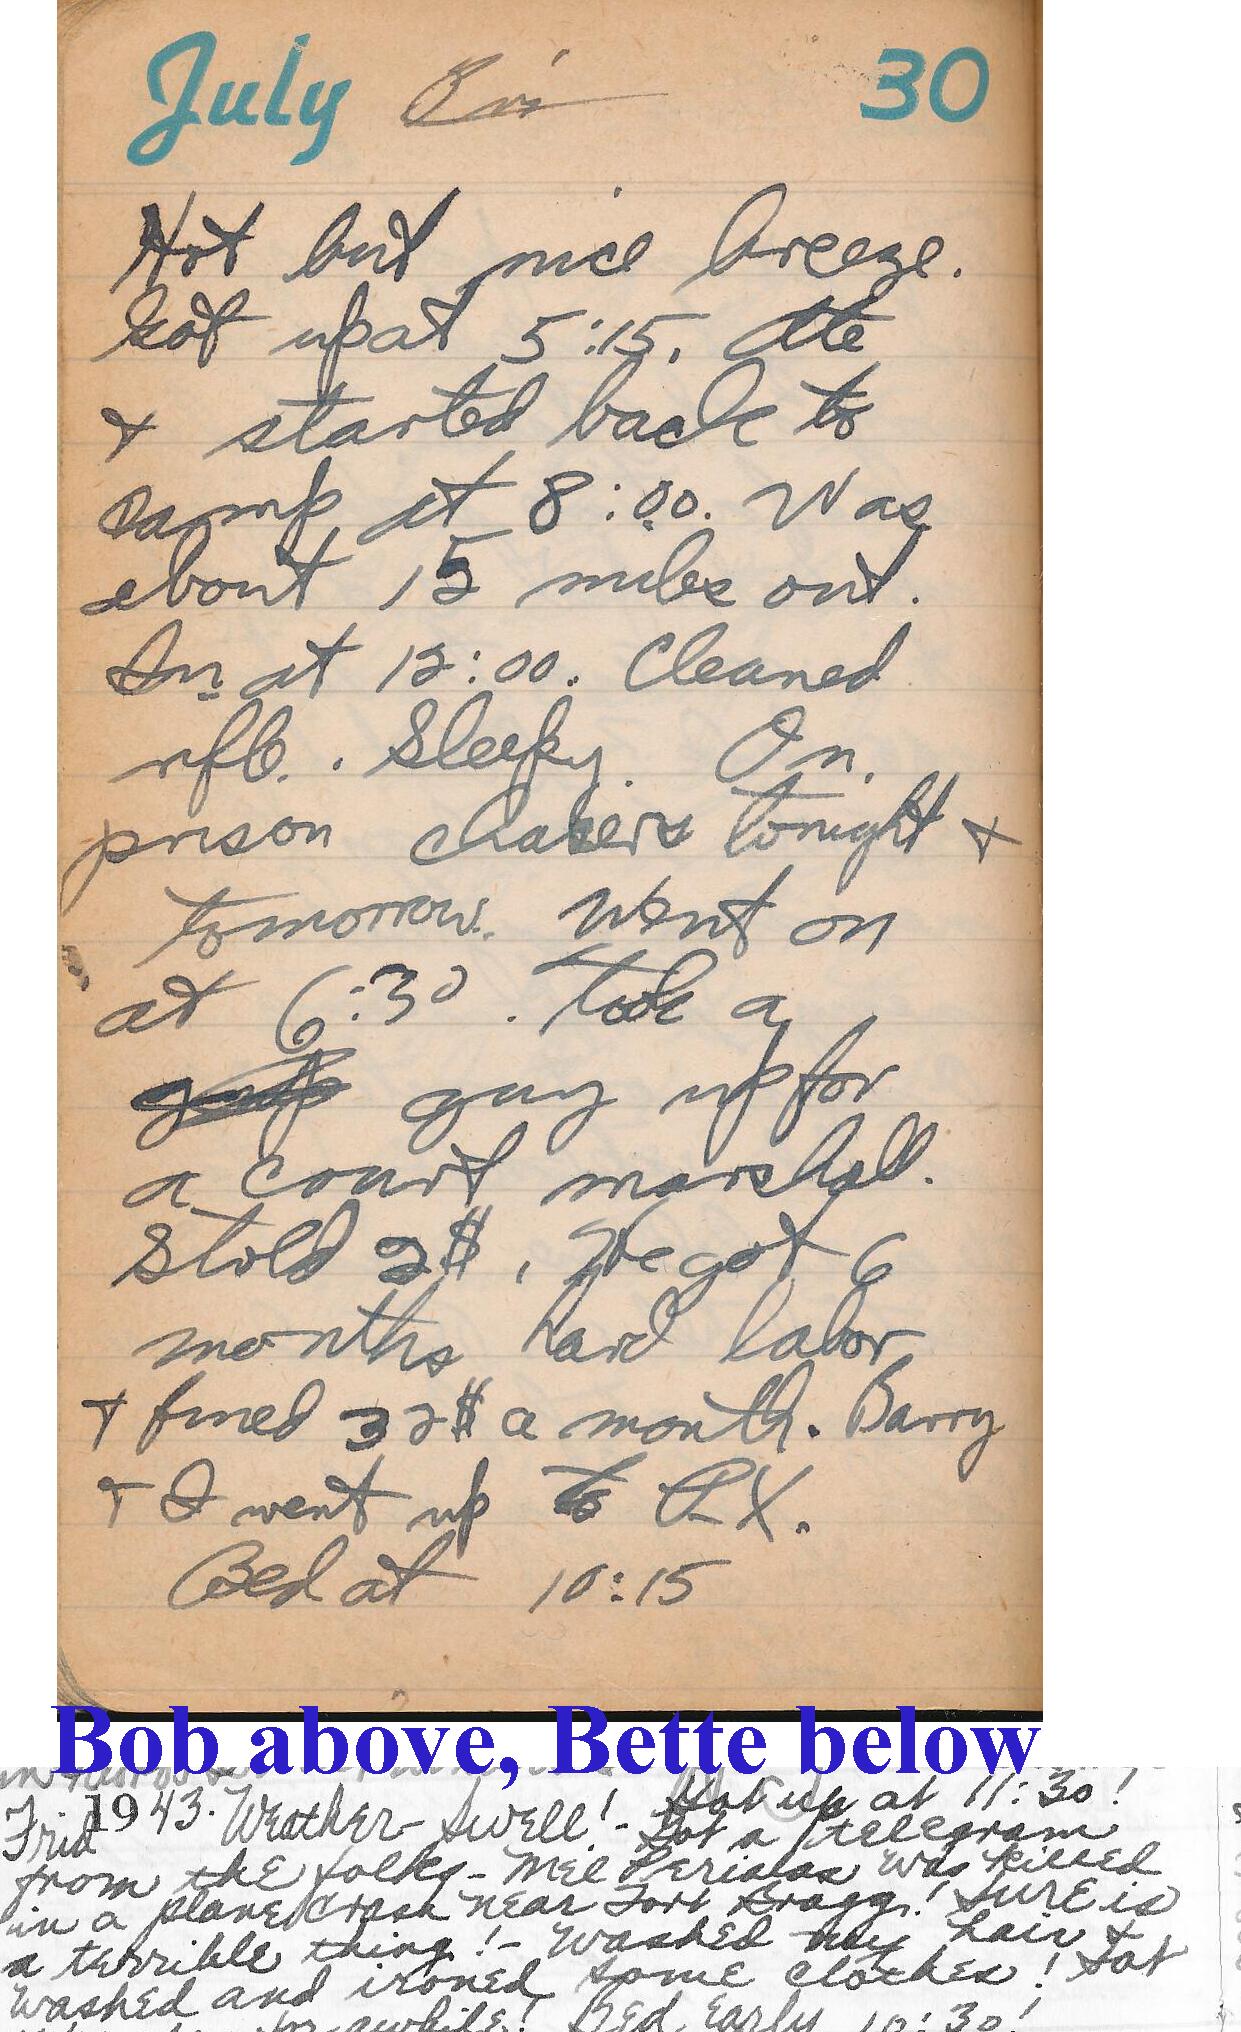 July Fri 30
Hot but nice breeze.
Got up at 5:15. Ate
+ started back to
camp at 8:00. Was
about 15 miles out.
In at 12:00. Cleaned
rifle. Sleepy. On
prison chasers tonight +
tomorrow. Went on
at 6:30. Took a
guy up for
a court marshall.
Stold 2$. He got 6
months hard labor
+ fined 32$ a month. Barry
+ I went up to PX.
Bed at 10:15
Bob above, Bette below
Got up at 11:30!
Frid 1943. Weather - Swell! - Got a telegram
from the folks - Mel was killed
in a plane crash near Fort Bragg! Sure is
a terrible thing! - Washed my hair +
washed and ironed some clothes! Sat
for awhile! Bed early 10:30!